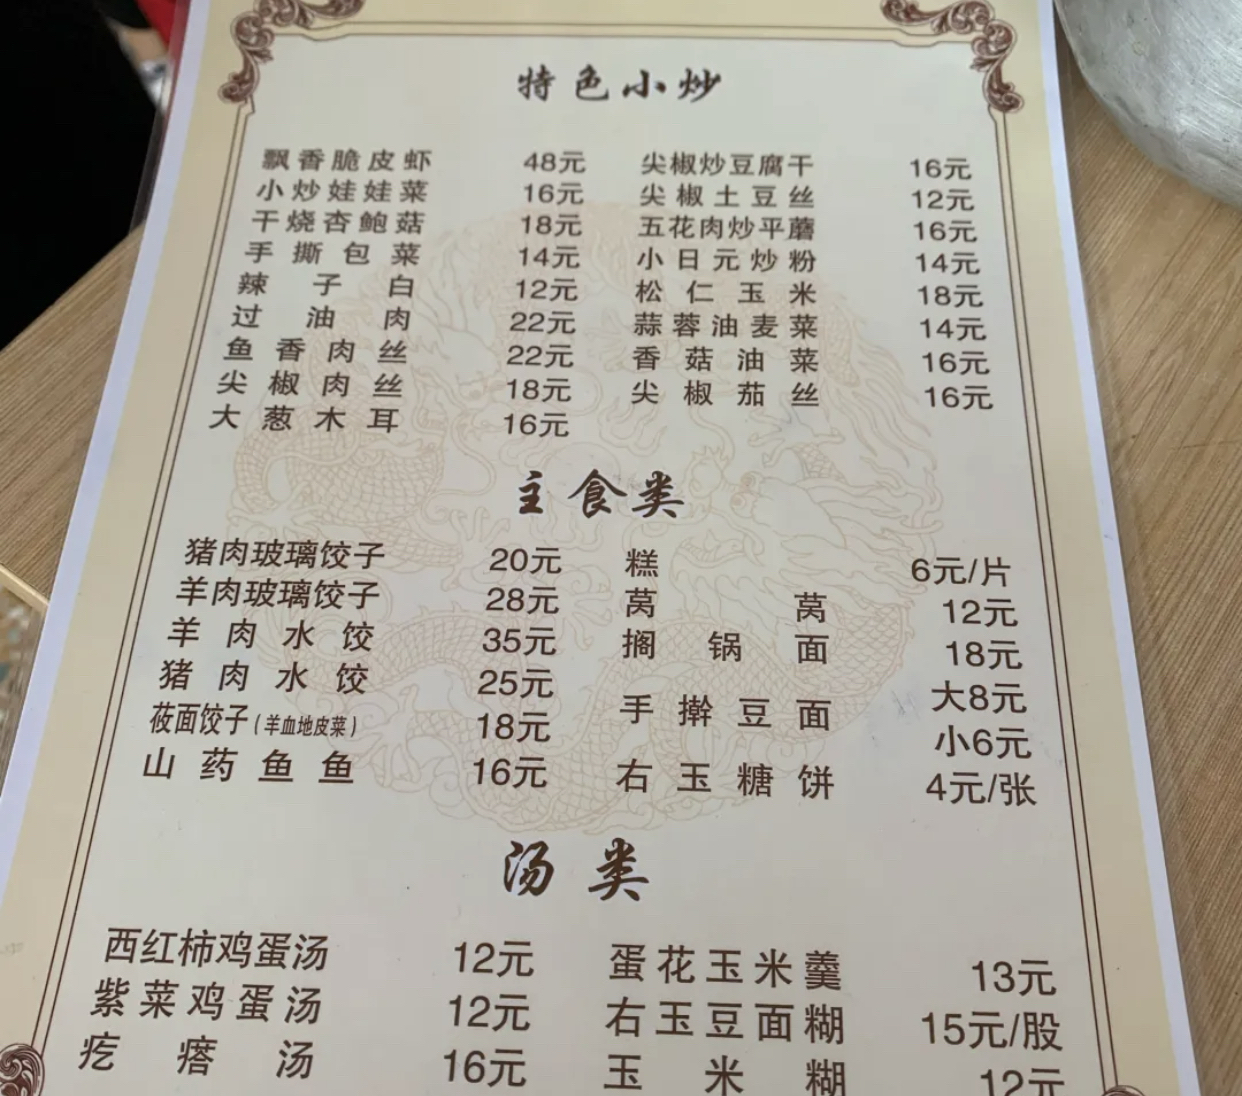 特色小炒
飘香脆皮虾 48元 尖椒炒豆腐干 16元
小炒娃娃菜 16元 尖椒土豆丝 12元
干烧杏鲍菇 18元 五花肉炒平蘑 16元
手撕包菜 14元 小日元炒粉 14元
辣子白 12元 松仁玉米 18元
过油肉 22元 蒜蓉油麦菜 14元
鱼香肉丝 22元 香菇油菜 16元
尖椒肉丝 18元 尖椒茄丝 16元
大葱木耳 16元
主食类
猪肉玻璃饺子 20元 糕 6元/片
羊肉玻璃饺子 28元 莴莴 12元
羊肉水饺 35元 搁锅面 18元
猪肉水饺 25元 手擀豆面 大8元
小6元
莜面饺子(羊血地皮菜) 18元
山药鱼鱼 16元 右玉糖饼 4元/张
汤类
西红柿鸡蛋汤 12元 蛋花玉米羹 13元
紫菜鸡蛋汤 12元 右玉豆面糊 15元/股
疙瘩汤 16元 玉米糊 12元